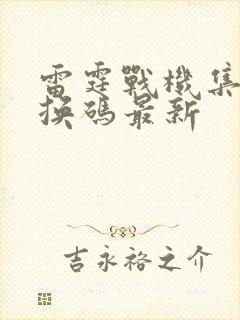 雷霆戰機集
換碼最新
吉永裕之介